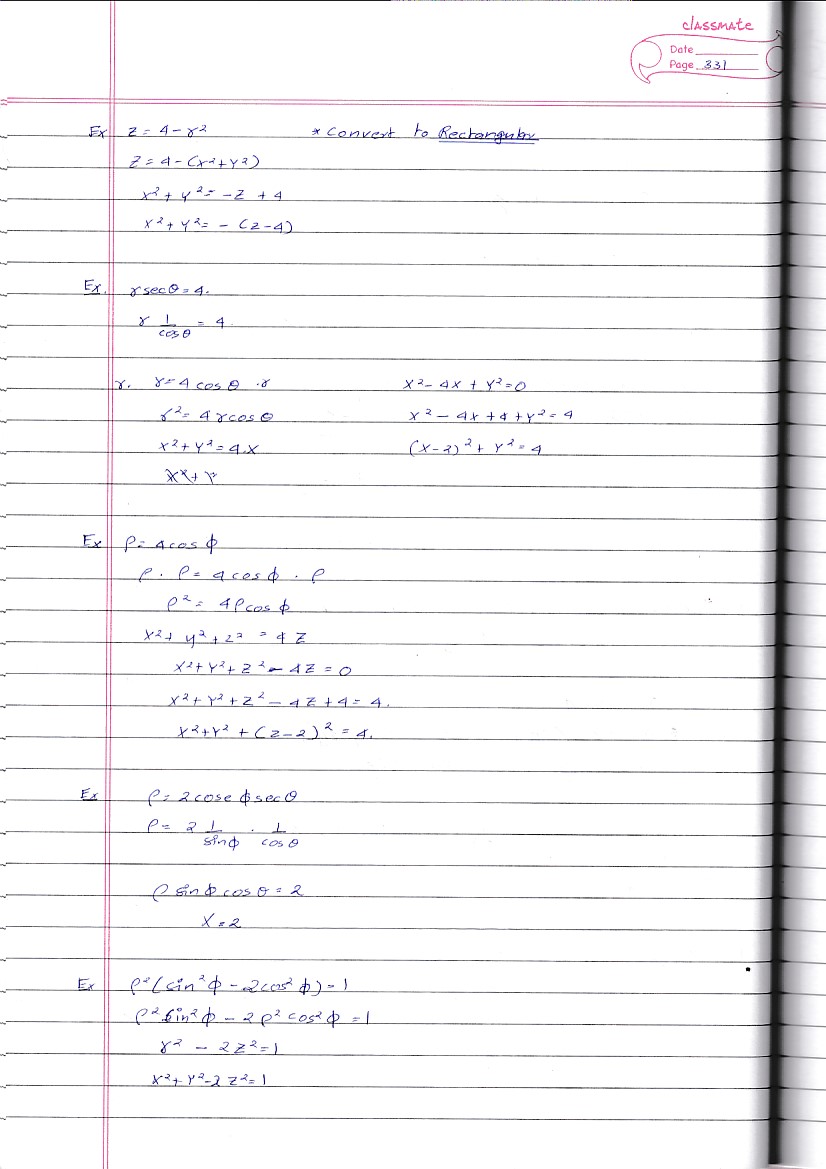 classmate
Date
Page 331
Ex z = 4 - r² * Convert to Rectangular
z = 4 - (x² + y²)
x² + y² = -z + 4
x² + y² = - (z - 4)
Ex. r secθ = 4.
r 1/cosθ = 4
r. r = 4 cosθ .r
r² = 4 r cosθ
x² + y² = 4.x
x² - 4x + y² = 0
x² - 4x + 4 + y² = 4
(x - 2)² + y² = 4
Ex ρ = 4cosϕ
ρ . ρ = 4cosϕ . ρ
ρ² = 4ρcosϕ
x² + y² + z² = 4z
x² + y² + z² - 4z = 0
x² + y² + z² - 4z + 4 = 4.
x² + y² + (z - 2)² = 4.
Ex ρ = 2cosec ϕ secθ
ρ = 2 1/sinϕ . 1/cosθ
ρ sinϕ cosθ = 2
x = 2
Ex ρ²(sin²ϕ - 2cos²ϕ) = 1
ρ² sin²ϕ - 2ρ² cos²ϕ = 1
r² - 2z² = 1
x² + y² - 2z² = 1